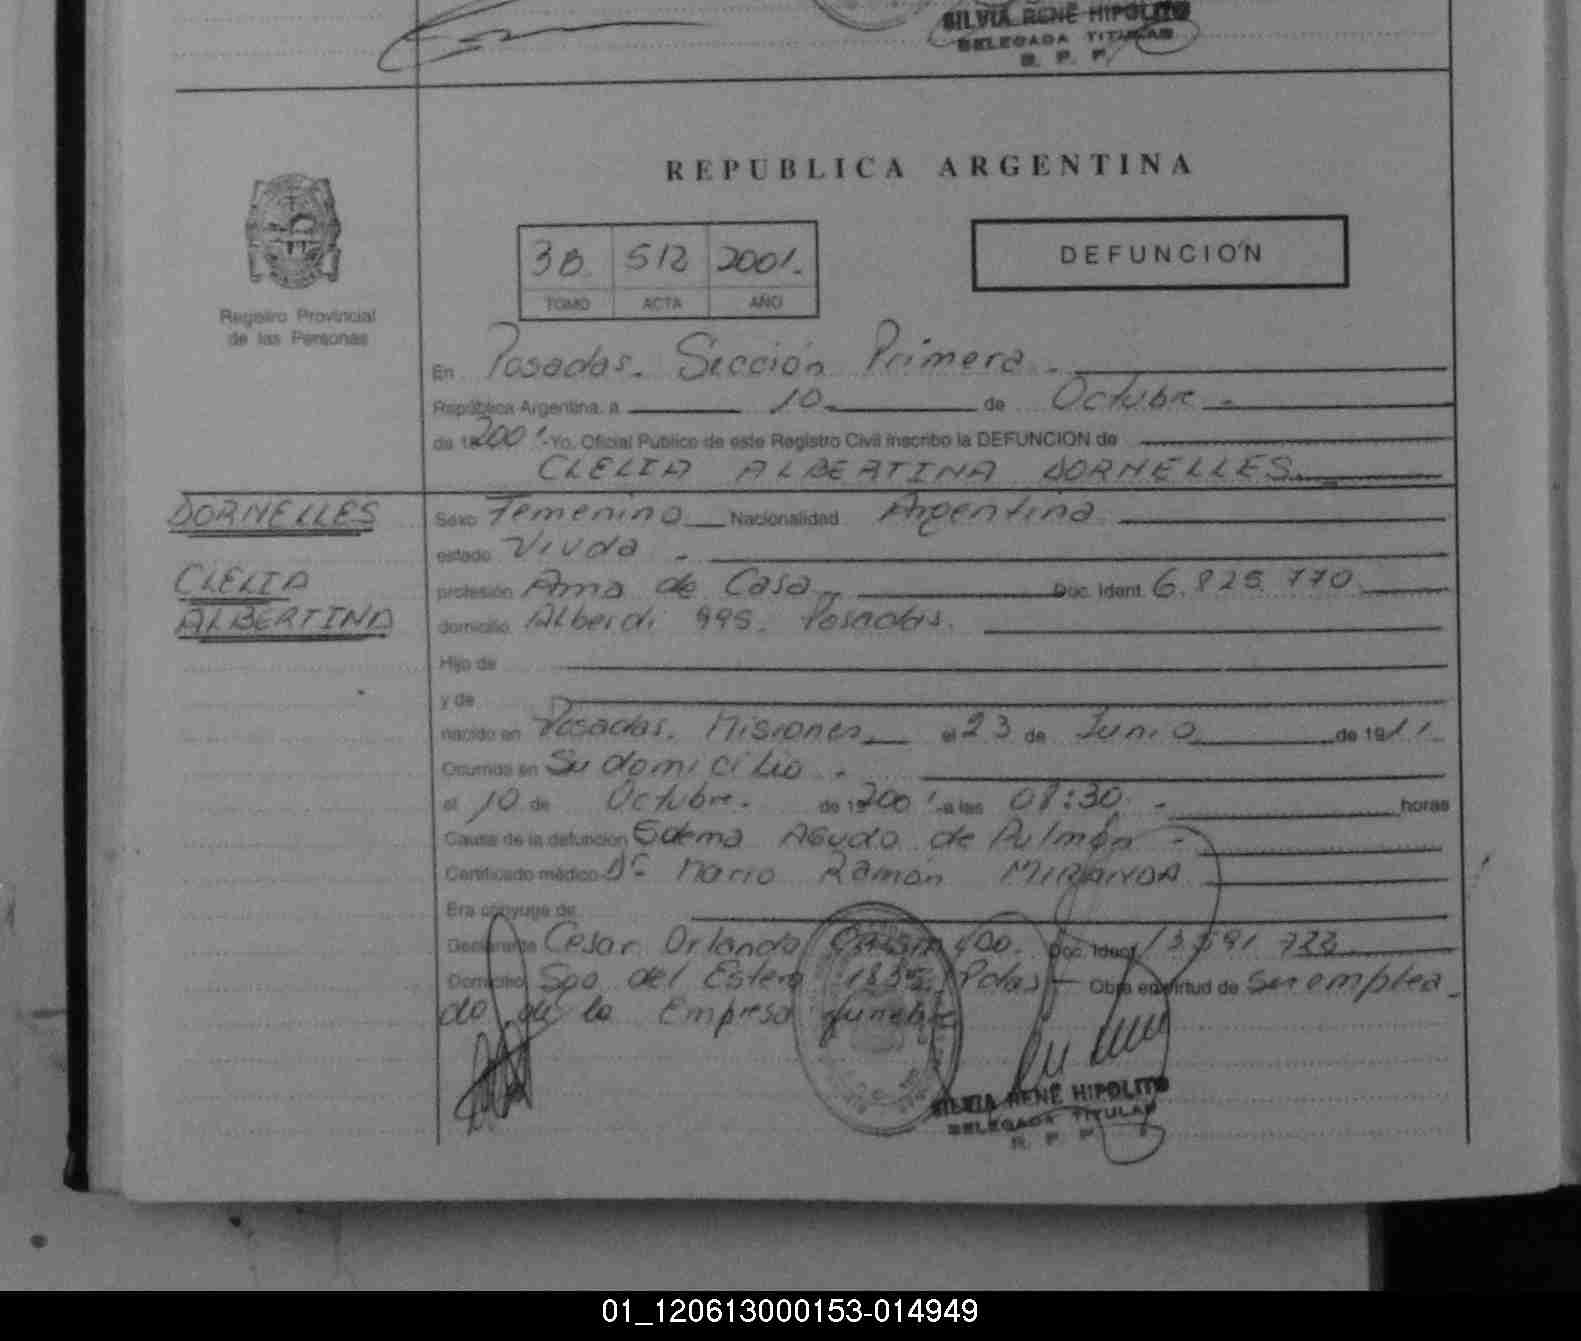 SILVIA RENE HIPOLITO
DELEGADA TITULAR
R. P. P.
REPUBLICA ARGENTINA
3B 512 2001.
TOMO ACTA AÑO
DEFUNCIÓN
Registro Provincial
de las Personas
En Posadas. Sección Primera.
República Argentina, a 10 de Octubre
de 19 2001 Yo, Oficial Público de este Registro Civil inscribo la DEFUNCION de
CLELIA ALBERTINA DORNELLES.
DORNELLES
CLELIA
ALBERTINA
Sexo Femenino Nacionalidad Argentina
estado Viuda
profesión Ama de Casa Doc. Ident. 6.825.770
domicilio Alberdi 995. Posadas.
Hijo de
y de
nacido en Posadas. Misiones el 23 de Junio de 1911.
Ocurrida en Su domicilio.
el 10 de Octubre. de 19 2001 a las 08:30. horas
Cause de la defunción Edema Agudo de Pulmón
Certificado médico Dr. Mario Ramón MIRANDA
Era cónyuge de
Declarante Cesar Orlando Doc. Ident. 13.591.722
Domicilio Sgo del Estero 1335. Pdas Obra en virtud de Ser emplea
do de la Empresa funebre
SILVIA RENE HIPOLITO
DELEGADA TITULAR
R. P. P.
01_120613000153-014949